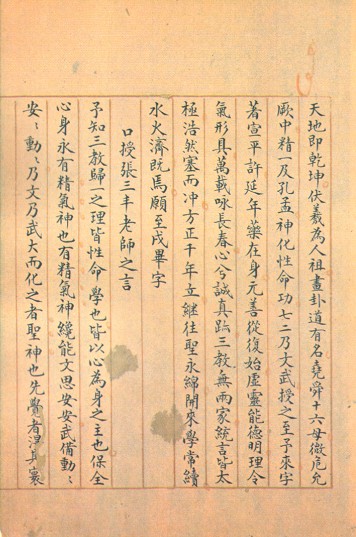 天地即乾坤伏羲為人祖畫卦道有名堯舜十六母微危允
厥中精一及孔孟神化性命功七二乃文武授之至予來字
著宣平許延年藥在身元善從復始虛靈能德明理令
氣形具萬載咏長春心兮誠真跡三教無兩家統言皆太
極浩然塞而冲方正千年立繼往聖永綿開來學常續
水火濟既焉願至戌畢字
口授張三丰老師之言
予知三教歸一之理皆性命學也皆以心為身之主也保全
心身永有精氣神也有精氣神纔能文思安安武備動〻
安〻動〻乃文乃武大而化之者聖神也先覺者得其寰